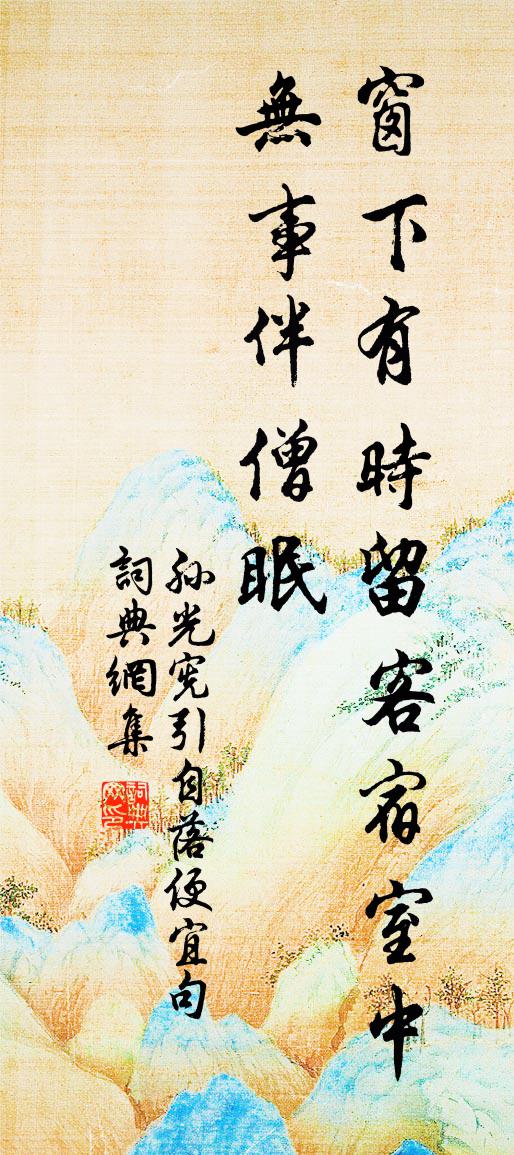 窗下有時留客宿室中
無事伴僧眠
孙光宪引自落便宜句
詞典網集